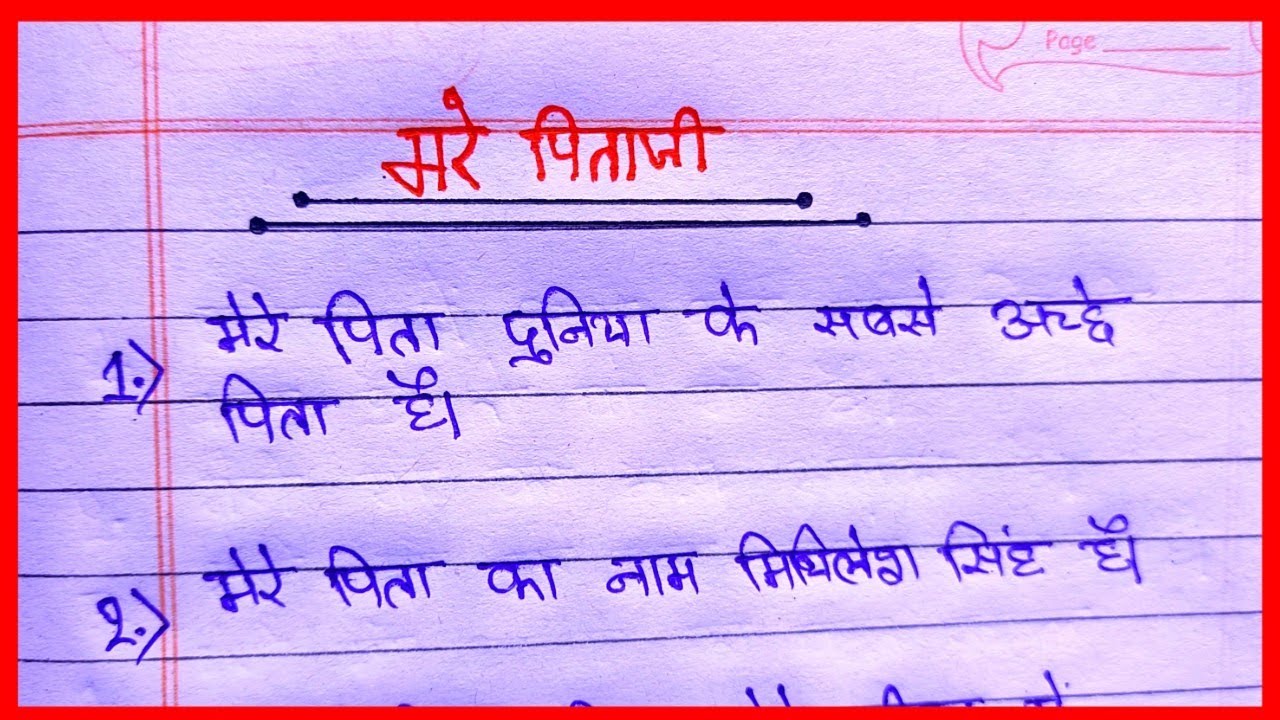 Page
मेरे पिताजी
1.) मेरे पिता दुनिया के सबसे अच्छे
पिता है।
2.) मेरे पिता का नाम मिथिलेश सिंह है।